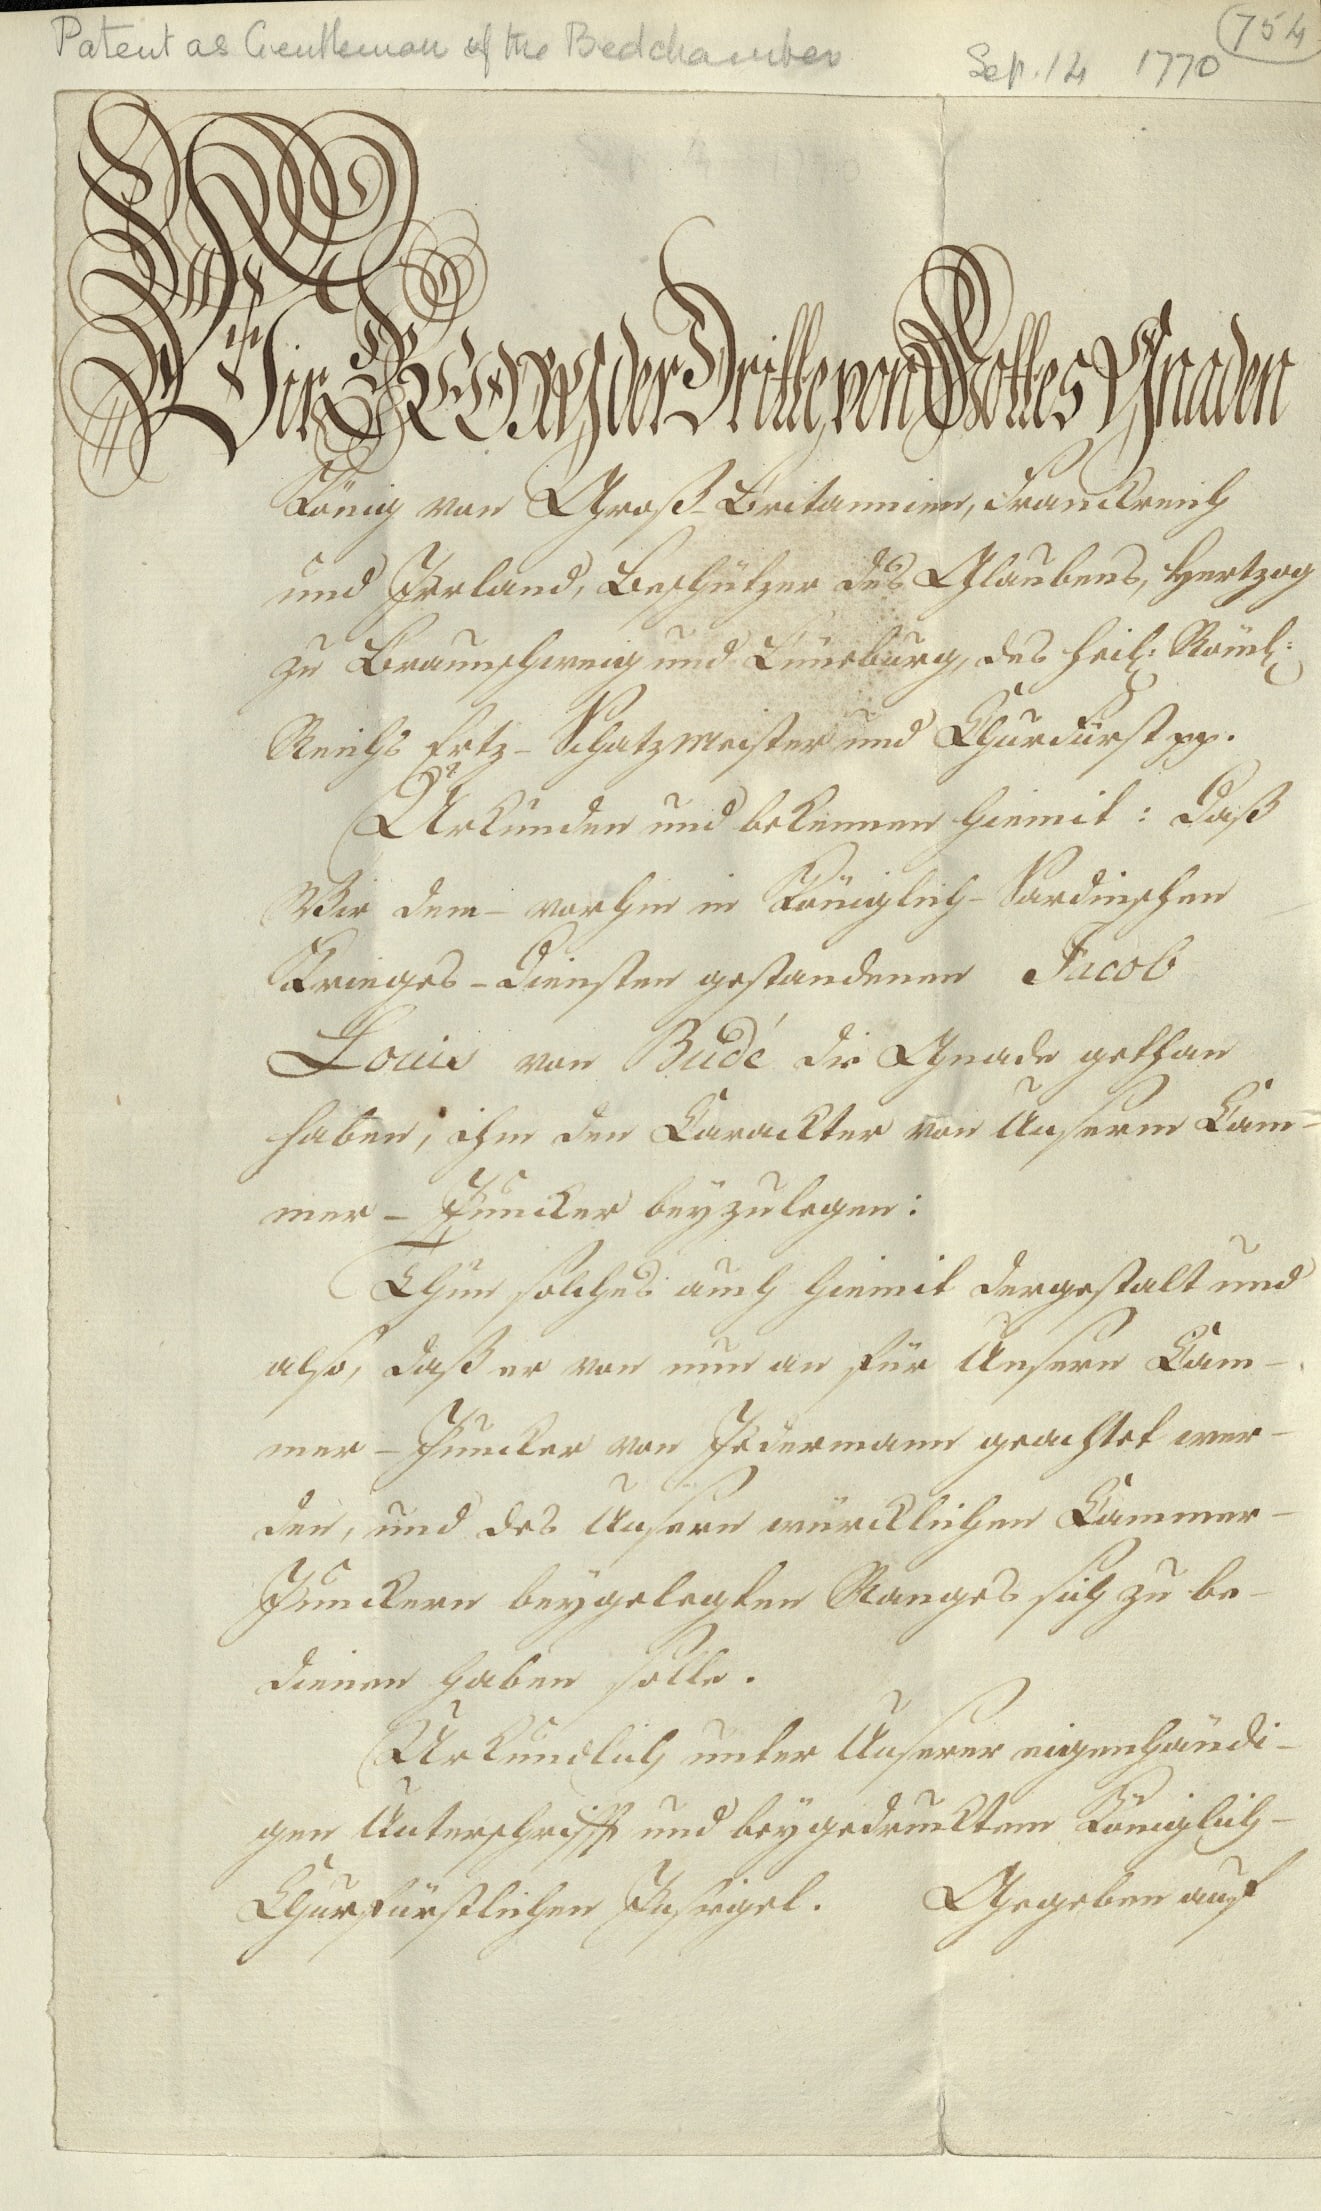 Patent as Gentleman of the Bedchamber
Sep. 14 1770
754
Wir GEORG der Dritte, von Gottes Gnaden
König von Groß-Britannien, Franckreich
und Irrland, Beschützer des Glaubens, Hertzog
zu Braunschweig und Lüneburg, des heil: Röml:
Reichs Ertz-Schatzmeister und Churfürst pp.
Urkunden und bekennen hiemit: daß
Wir dem – vorhin in Königlich-Sardinischen
Krieges-Diensten gestandenen Jacob
Louis von Budé die Gnade gethan
haben, ihm den Carackter von Unserm Cam-
mer-Juncker beyzulegen:
Thun solches auch hiemit dergestalt und
also, daß er von nun an für Unsern Cam-
mer-Juncker von Jedermann geachtet wer-
den, und des Unsern würcklichen Cammer-
Junckern beygelegten Ranges sich zu be-
dienen haben solle.
Urkundlich unter Unserer eigenhändi-
gen Unterschrifft und beygedrucktem Königlich-
Churfürstlichen Insiegel. Gegeben auf